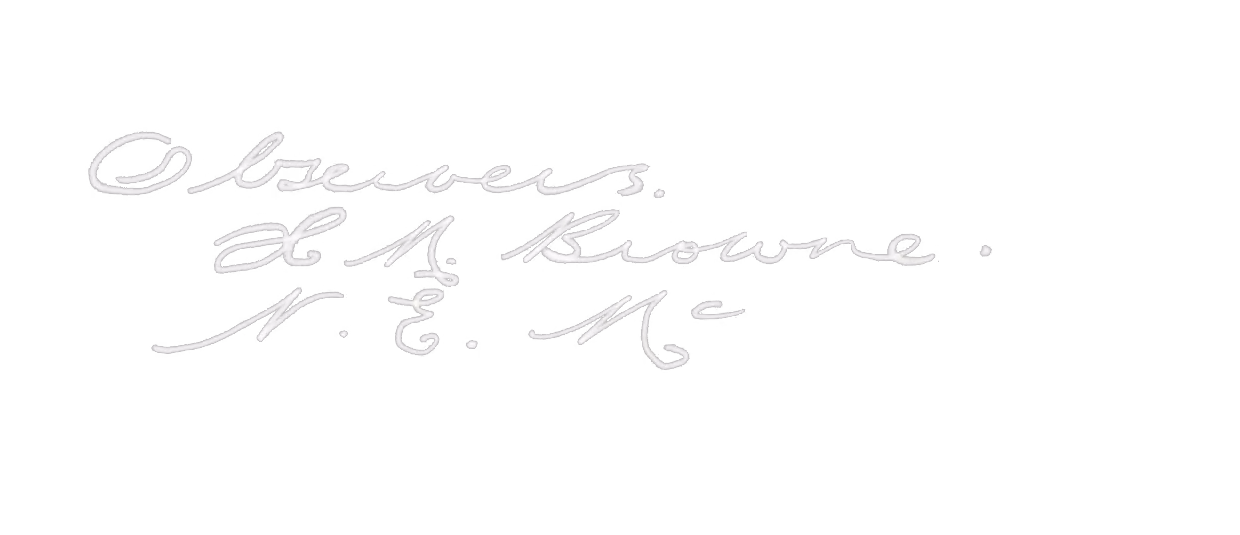 Observers.
H. M. Browne.
N. E. Mc